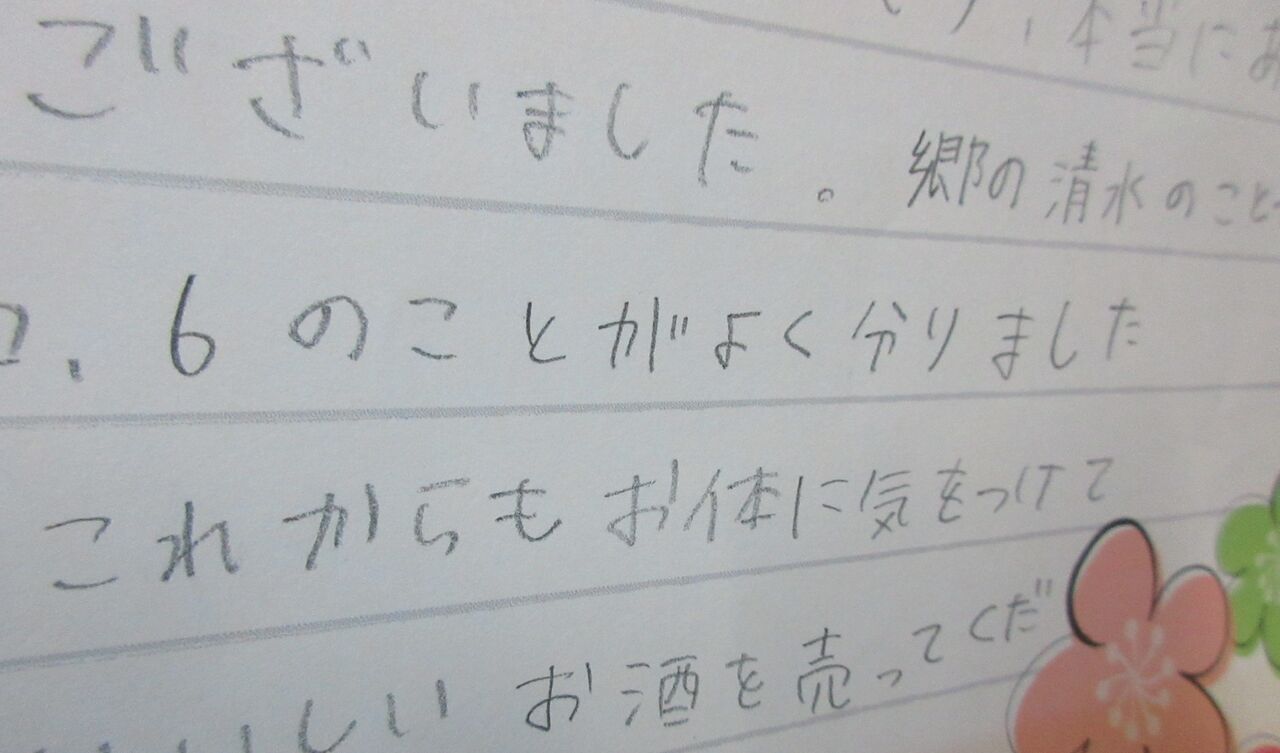 本当にあ
ございました。郷の清水のこと
.6のことがよく分りました
これからもお体に気をつけて
いしいお酒を売ってくだ